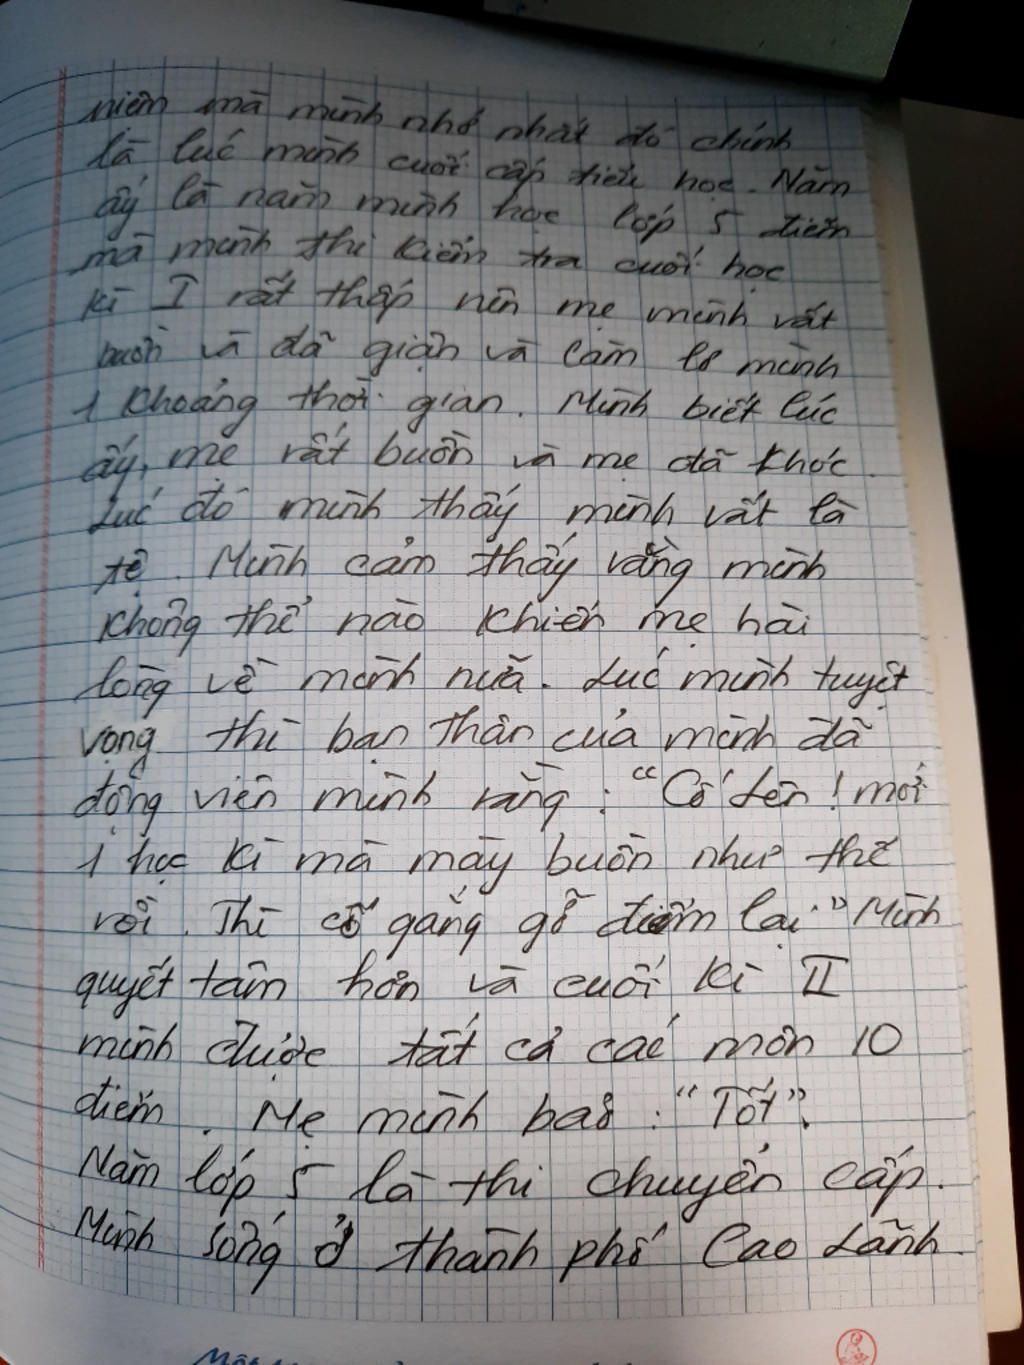 niệm mà mình nhớ nhất đó chính
là lúc mình cuối cấp tiểu học. Năm
ấy là năm mình học lớp 5 điểm
mà mình thi kiểm tra cuối học
kì I rất thấp nên mẹ mình rất
buồn và đã giận và làm lơ mình
1 khoảng thời gian. Mình biết lúc
ấy, mẹ rất buồn và mẹ đã khóc.
Lúc đó mình thấy mình rất là
tệ. Mình cảm thấy rằng mình
không thể nào khiến mẹ hài
lòng về mình nữa. Lúc mình tuyệt
vọng thì bạn thân của mình đã
động viên mình rằng: "Cố lên! mới
1 học kì mà mày buồn như thế
rồi. Thì cố gắng gỡ điểm lại." Mình
quyết tâm hơn và cuối kì II
mình được tất cả các môn 10
điểm. Mẹ mình bảo: "Tốt".
Năm lớp 5 là thi chuyển cấp.
Mình sống ở thành phố Cao Lãnh.